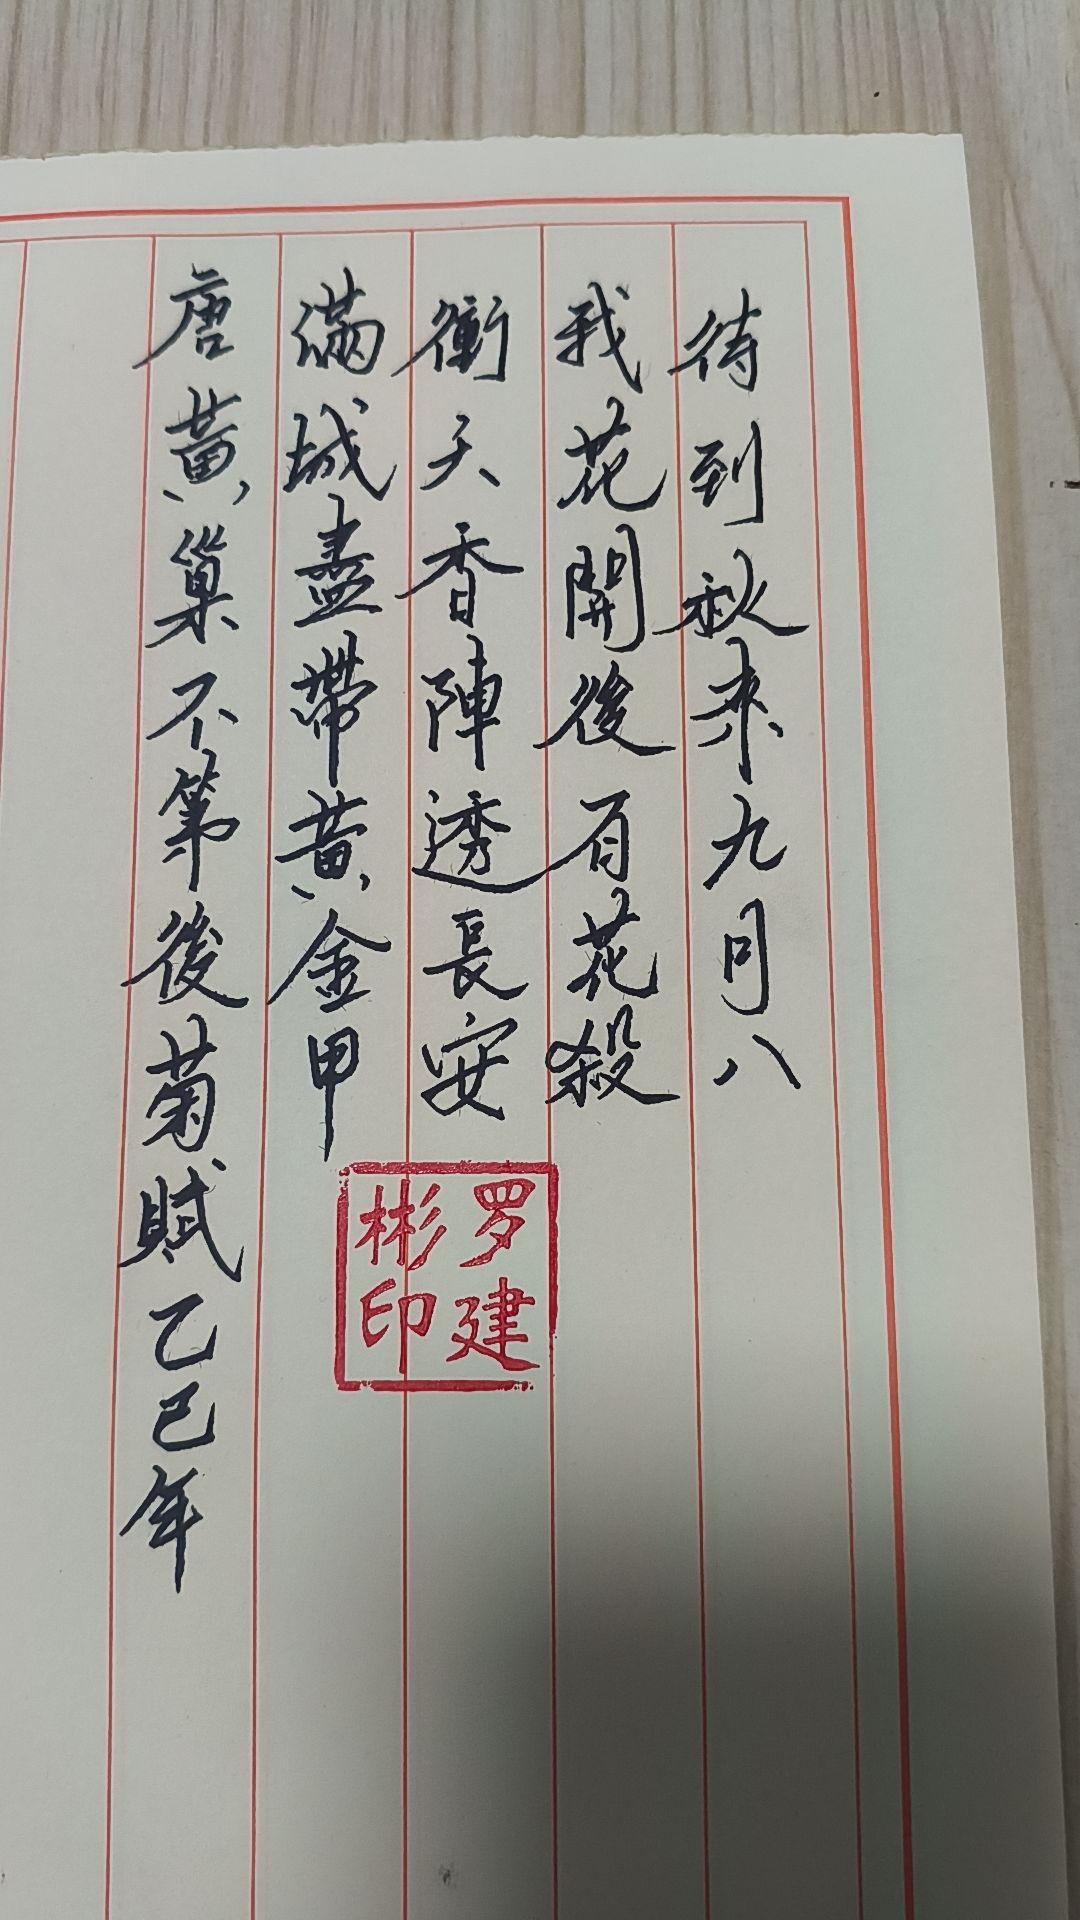 待到秋来九月八
我花開後百花殺
衝天香陣透長安
滿城盡帶黃金甲
唐黃巢不第後菊賦乙巳年
罗建彬印